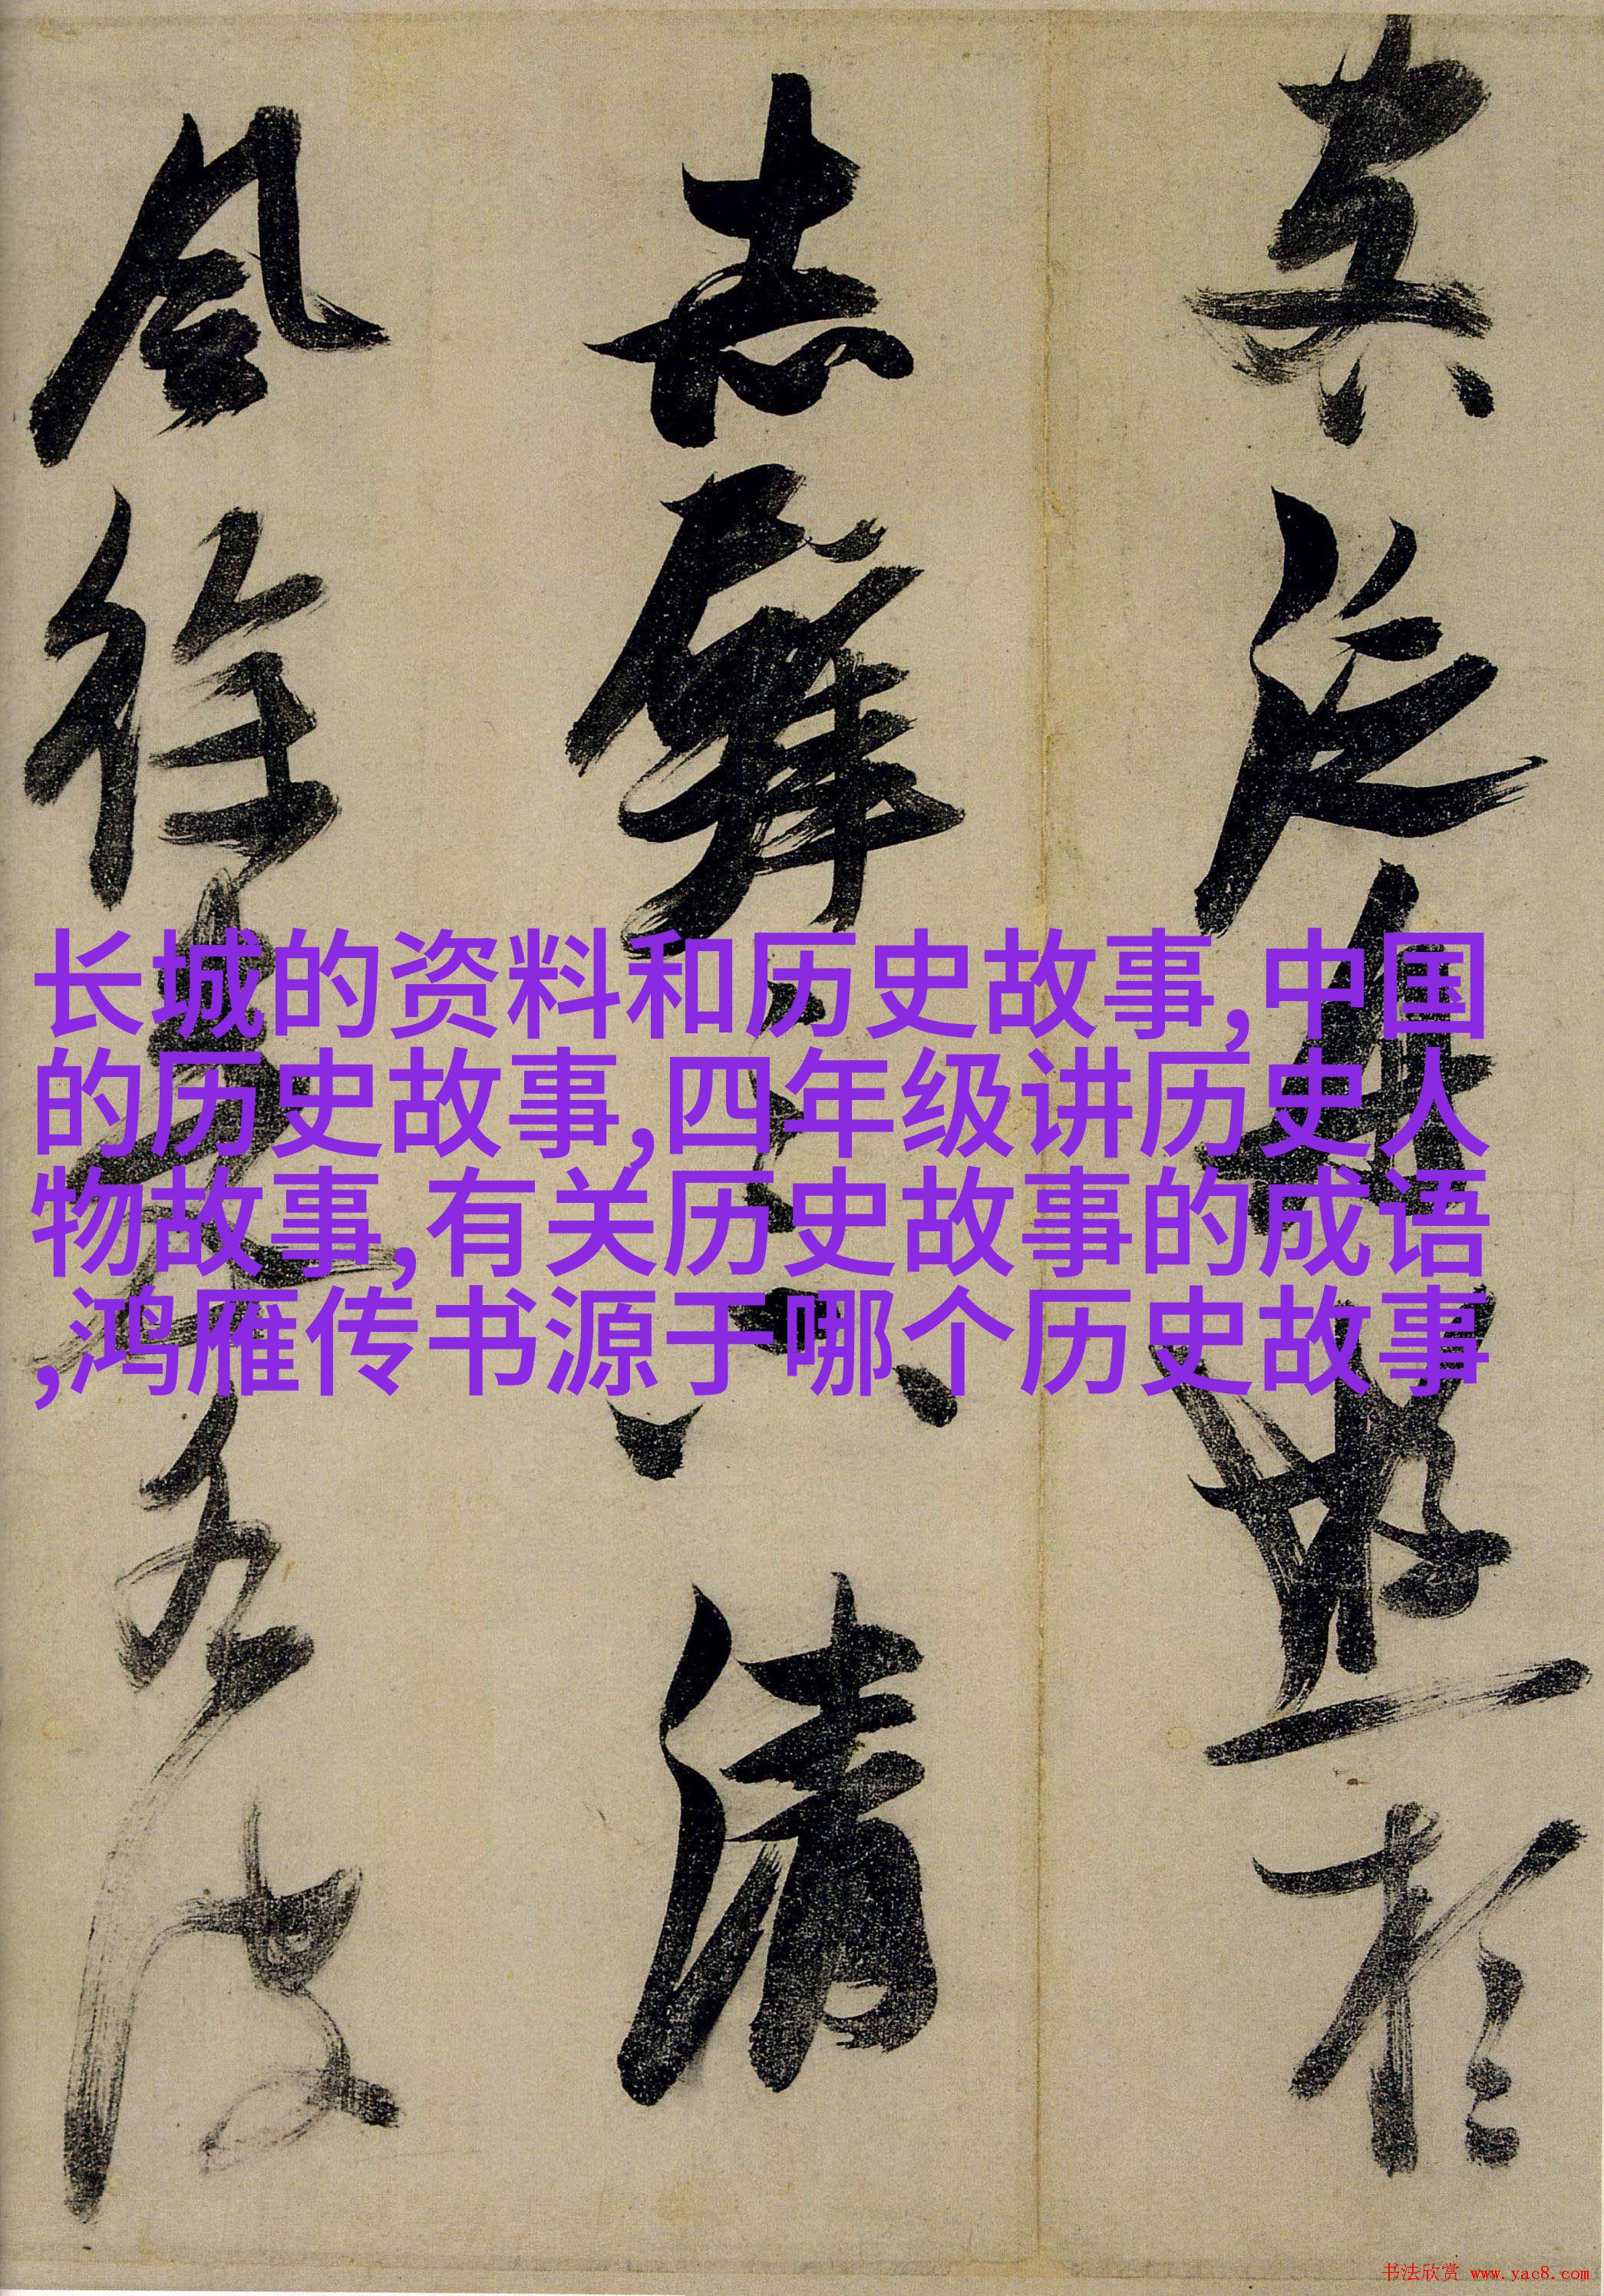 泛舟遊於
赤壁之下清
風徐來水波
长城的资料和历史故事,中国
的历史故事,四年级讲历史人
物故事,有关历史故事的成语
,鸿雁传书源于哪个历史故事
书法欣赏 www.yac8.com